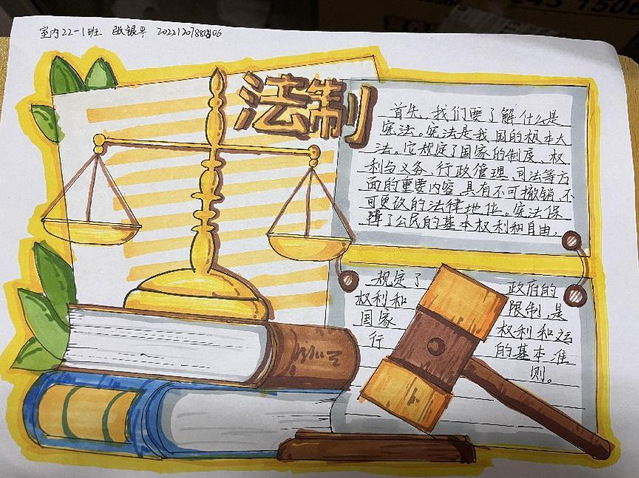 室内22-1班 张银早 20221207880106
法制
首先，我们要了解什么是
宪法。宪法是我国的根本大
法。它规定了国家的制度、权
利与义务、行政管理、司法等方
面的重要内容，具有不可撤销、不
可更改的法律地位。宪法保
障了公民的基本权利和自由，
规定了 政府的
权利和 限制，是
国家 权利和运
行 的基本准
则。